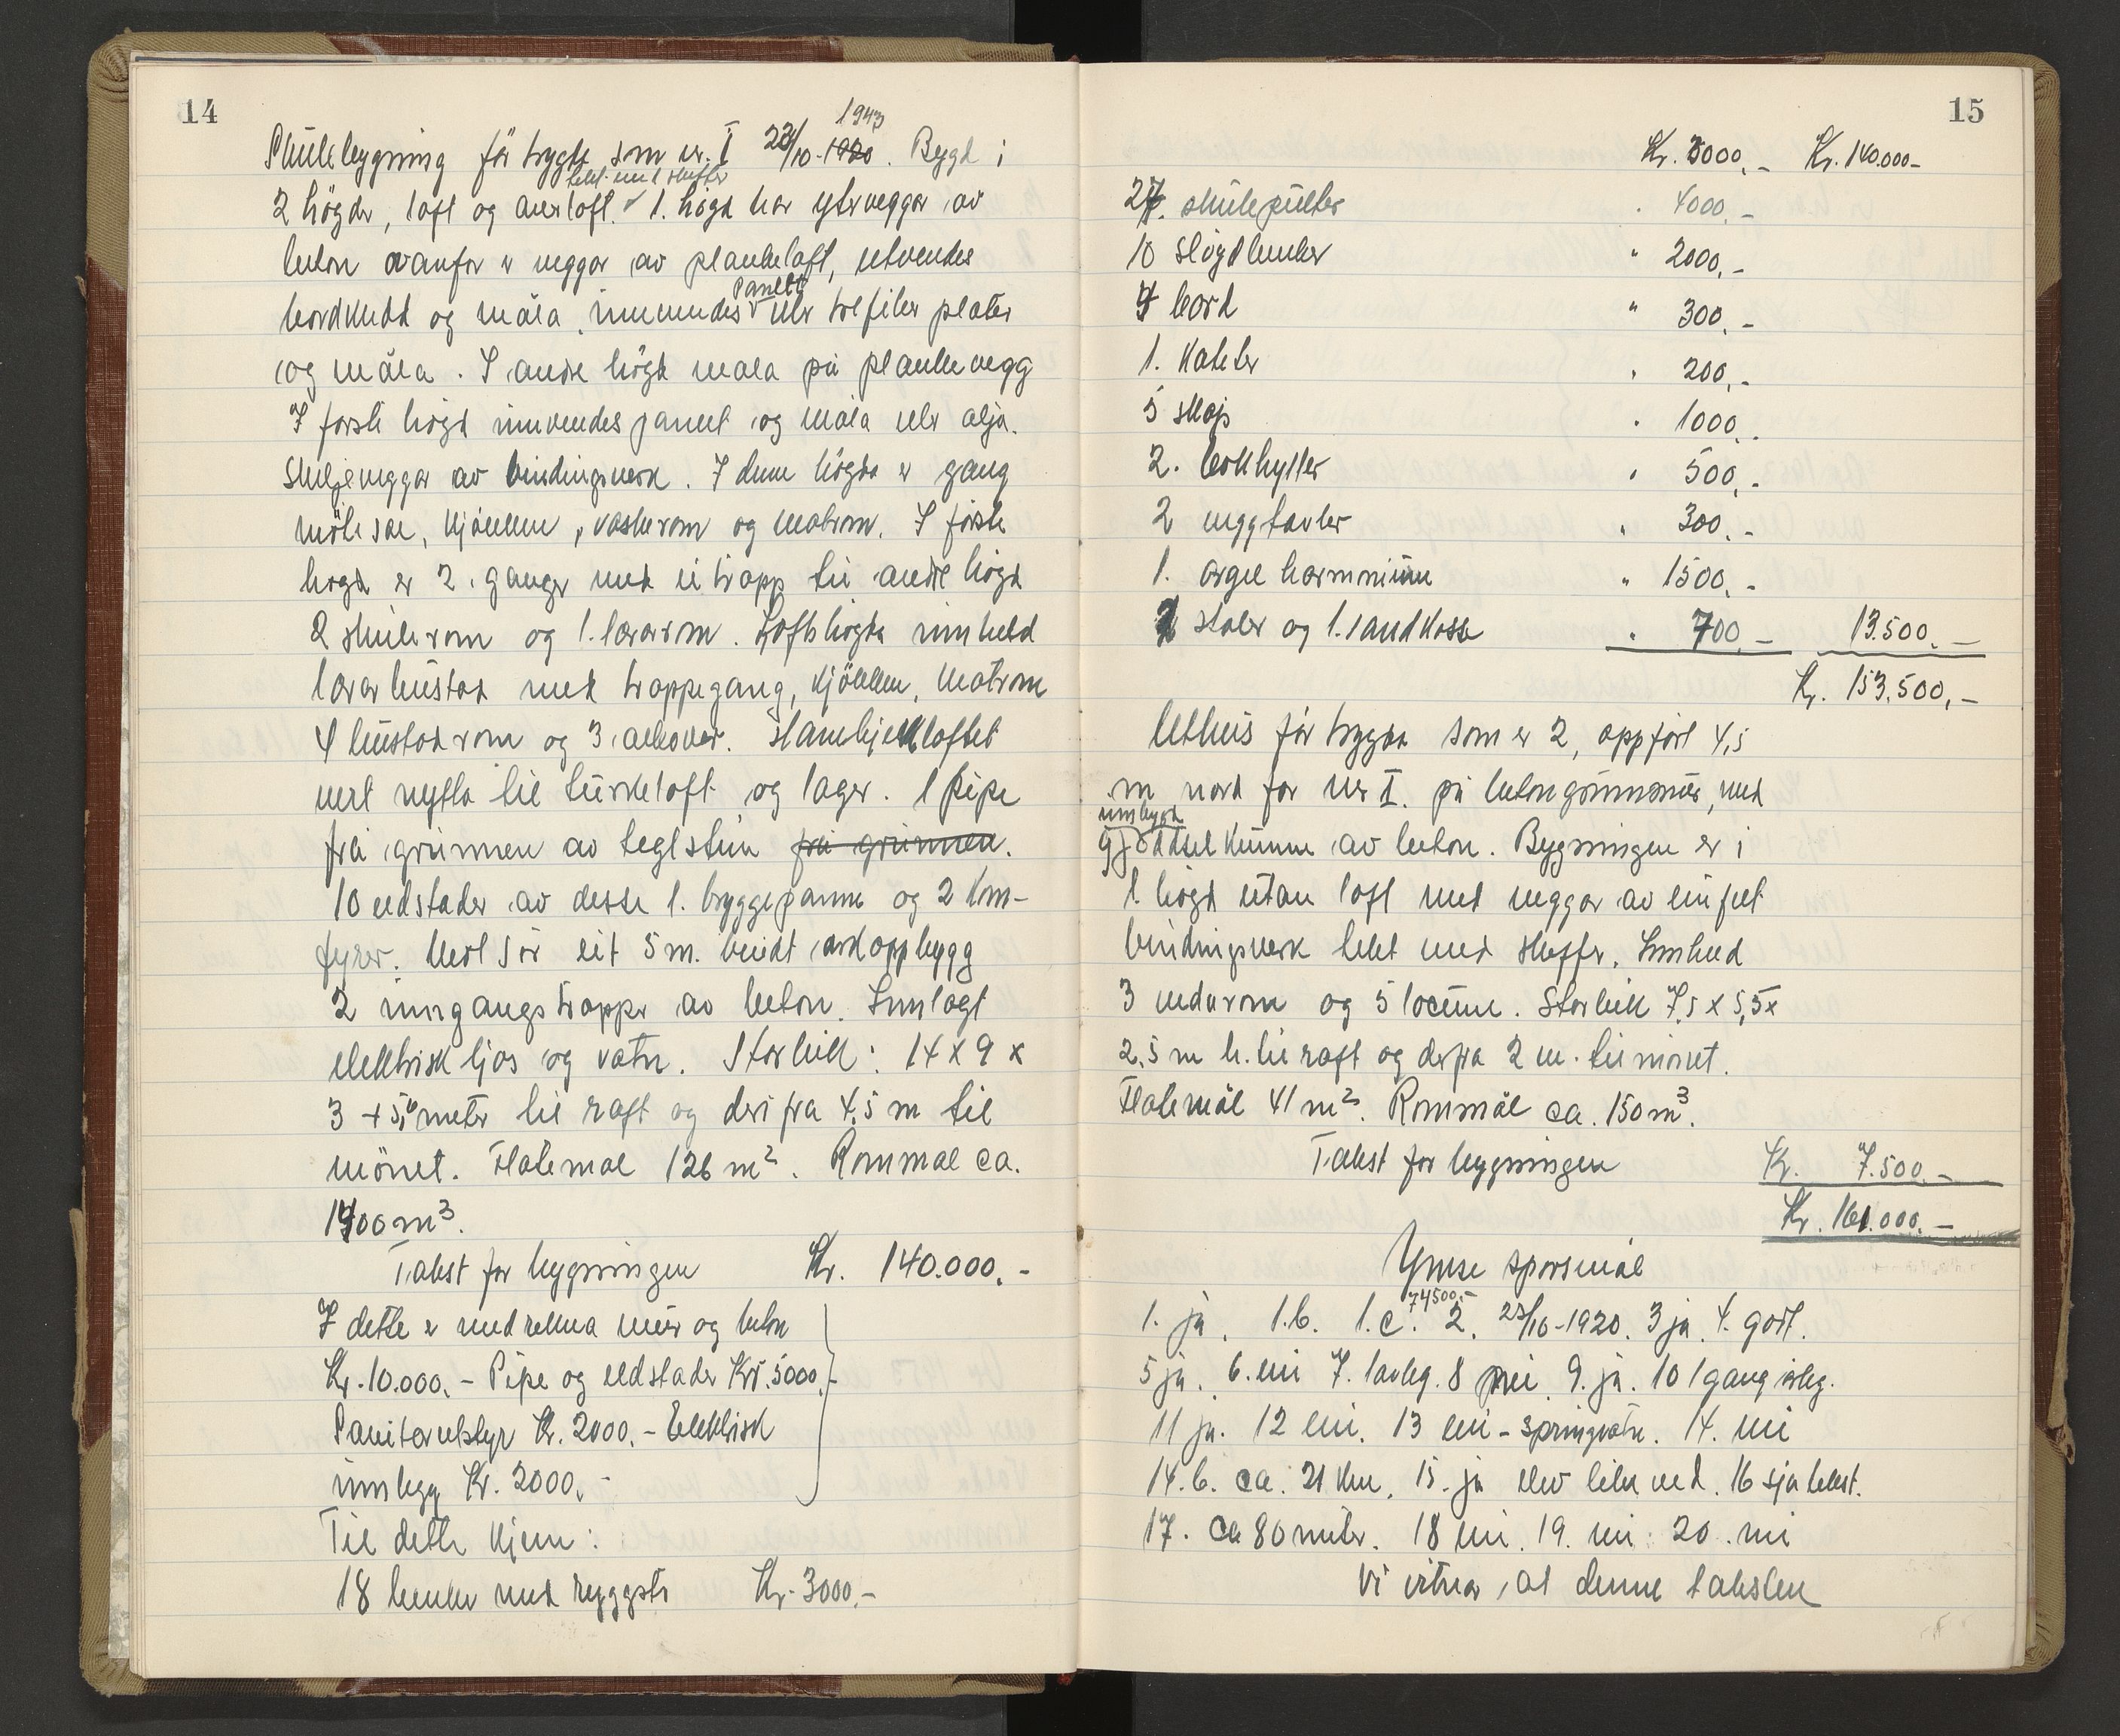 14
1943
Skulebygning før trygda som nr. I 23/10-1920. Bygd i
tekt med skiffer
2 høgder, loft og overloft. 1. høgd har yterveggar av
beton ovanfor er veggar av plankeloft, utvendes
panelt
bordkledd og måla innvendes eller trefiber plater
og måla. I andre høgd mala på plankevegg
I første høgd innvendes panelt og måla eller olja.
Skiljeveggar av bindingsverk. I denne høgda er gang
møtesal, kjøkken, vaskerom og matrom. I første
høgd er 2 ganger med ei trapp til andre høgd
2 skulerom og 1. lærarrom. Loftshøgda innheld
lærarbustad med trappegang, kjøkken, matrom
4 bustadrom og 3 alkover. Hanebjelkloftet
vert nytta til turkeloft og lager. 1 pipe
frå grunnen av teglstein frå grunnen.
10 eldstader av desse 1. bryggepanne og 2 kom-
fyrer. Mot sør eit 5 m. breidt ardoppbygg
2 inngangstrapper av beton. Innlagt
elektrisk ljos og vatn. Storleik: 14 x 9 x
3 + 5,0 meter til raft og deri fra 4,5 m til
mønet. Flatemål 126 m². Rommål ca.
1400 m³.
Takst for bygningen Kr. 140.000.-
I dette er medrekna mur og beton
Kr. 10.000.- Pipe og eldstader Kr. 5000.-
Sanitærutstyr Kr. 2000.- Elektrisk
innlegg Kr. 2000.-
Til dette kjem:
18 benker med ryggstø Kr. 3000.-
15
Kr. 3000.- Kr. 140.000-
27. skulepulter " 4000.-
10 sløydbenker " 2000.-
4 bord " 300.-
1. Kateter " 200.-
5 skap " 1000.
2. bokhyller " 500.-
2 veggtavler " 300.-
1. orgel harmonium " 1500.-
stoler og 1. sandkasse " 700.- 13.500.-
Kr. 153.500,-
Uthus før trygda som nr 2, oppført 4,5
m nord for nr I. på betongrunnmur, med
innbygd
gjødselkumme av beton. Bygningen er i
1 høgd utan loft med veggar av einfelt
bindingsverk tekt med skiffer. Innheld
3 vedarom og 5 locum. Storleik 7,5 x 5,5 x
2,5 m h. til raft og derfra 2 m. til mønet.
Flatemål 41 m². Rommål ca. 150 m³.
Takst for bygningen Kr. 7.500.-
Kr. 161.000.-
Ymse spørsmål
74500.-
1. ja. 1.b. 1.c. 2. 23/10-1920. 3 ja. 4. godt.
5 ja. 6. nei 7. lovleg. 8 nei. 9. ja. 10 1 gang årleg.
11 ja. 12 nei. 13 nei - springvatn. 14. nei
14.b. ca. 21 km. 15. ja elev likn ved. 16 sjå tekst.
17. ca 80 meter. 18 nei. 19. nei. 20. nei
Vi vitnar, at denne taksten